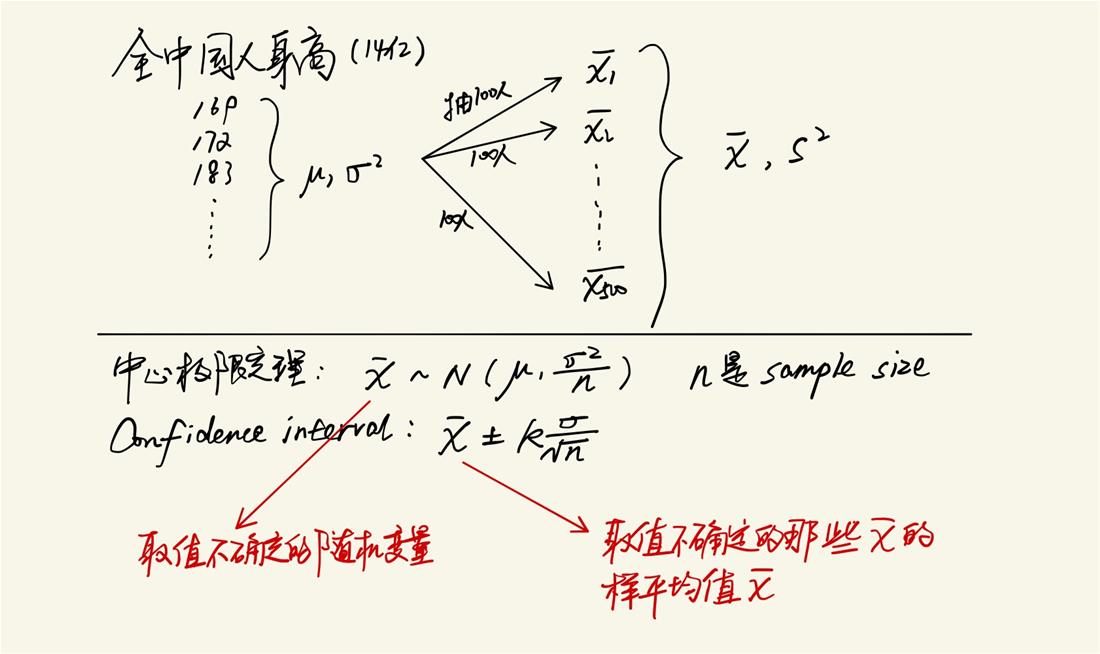 全中国人身高(14亿)
169
172
183
μ, σ²
抽100人
100人
100人
x̄₁
x̄₂
x̄₅₀₀
x̄, s²
中心极限定理: x̄ ~ N(μ, σ²/n) n是 sample size
Confidence interval: x̄ ± k σ/√n
取值不确定的随机变量
取值不确定的那些 x̄ 的
样平均值 x̄